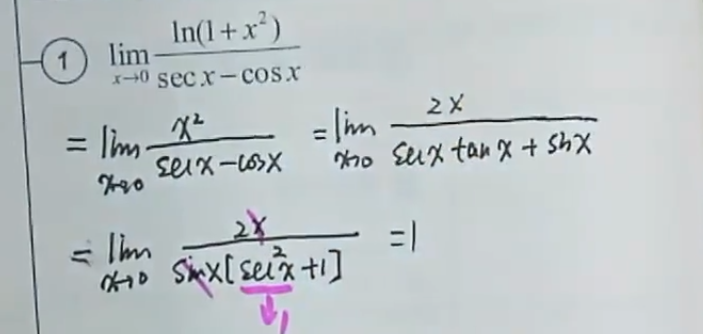 ① lim x→0 ln(1+x²) / (sec x − cos x)
= lim x→0 x² / (sec x − cos x) = lim x→0 2x / (sec x tan x + sin x)
= lim x→0 2x / (sin x [sec² x + 1]) = 1
↓ 1